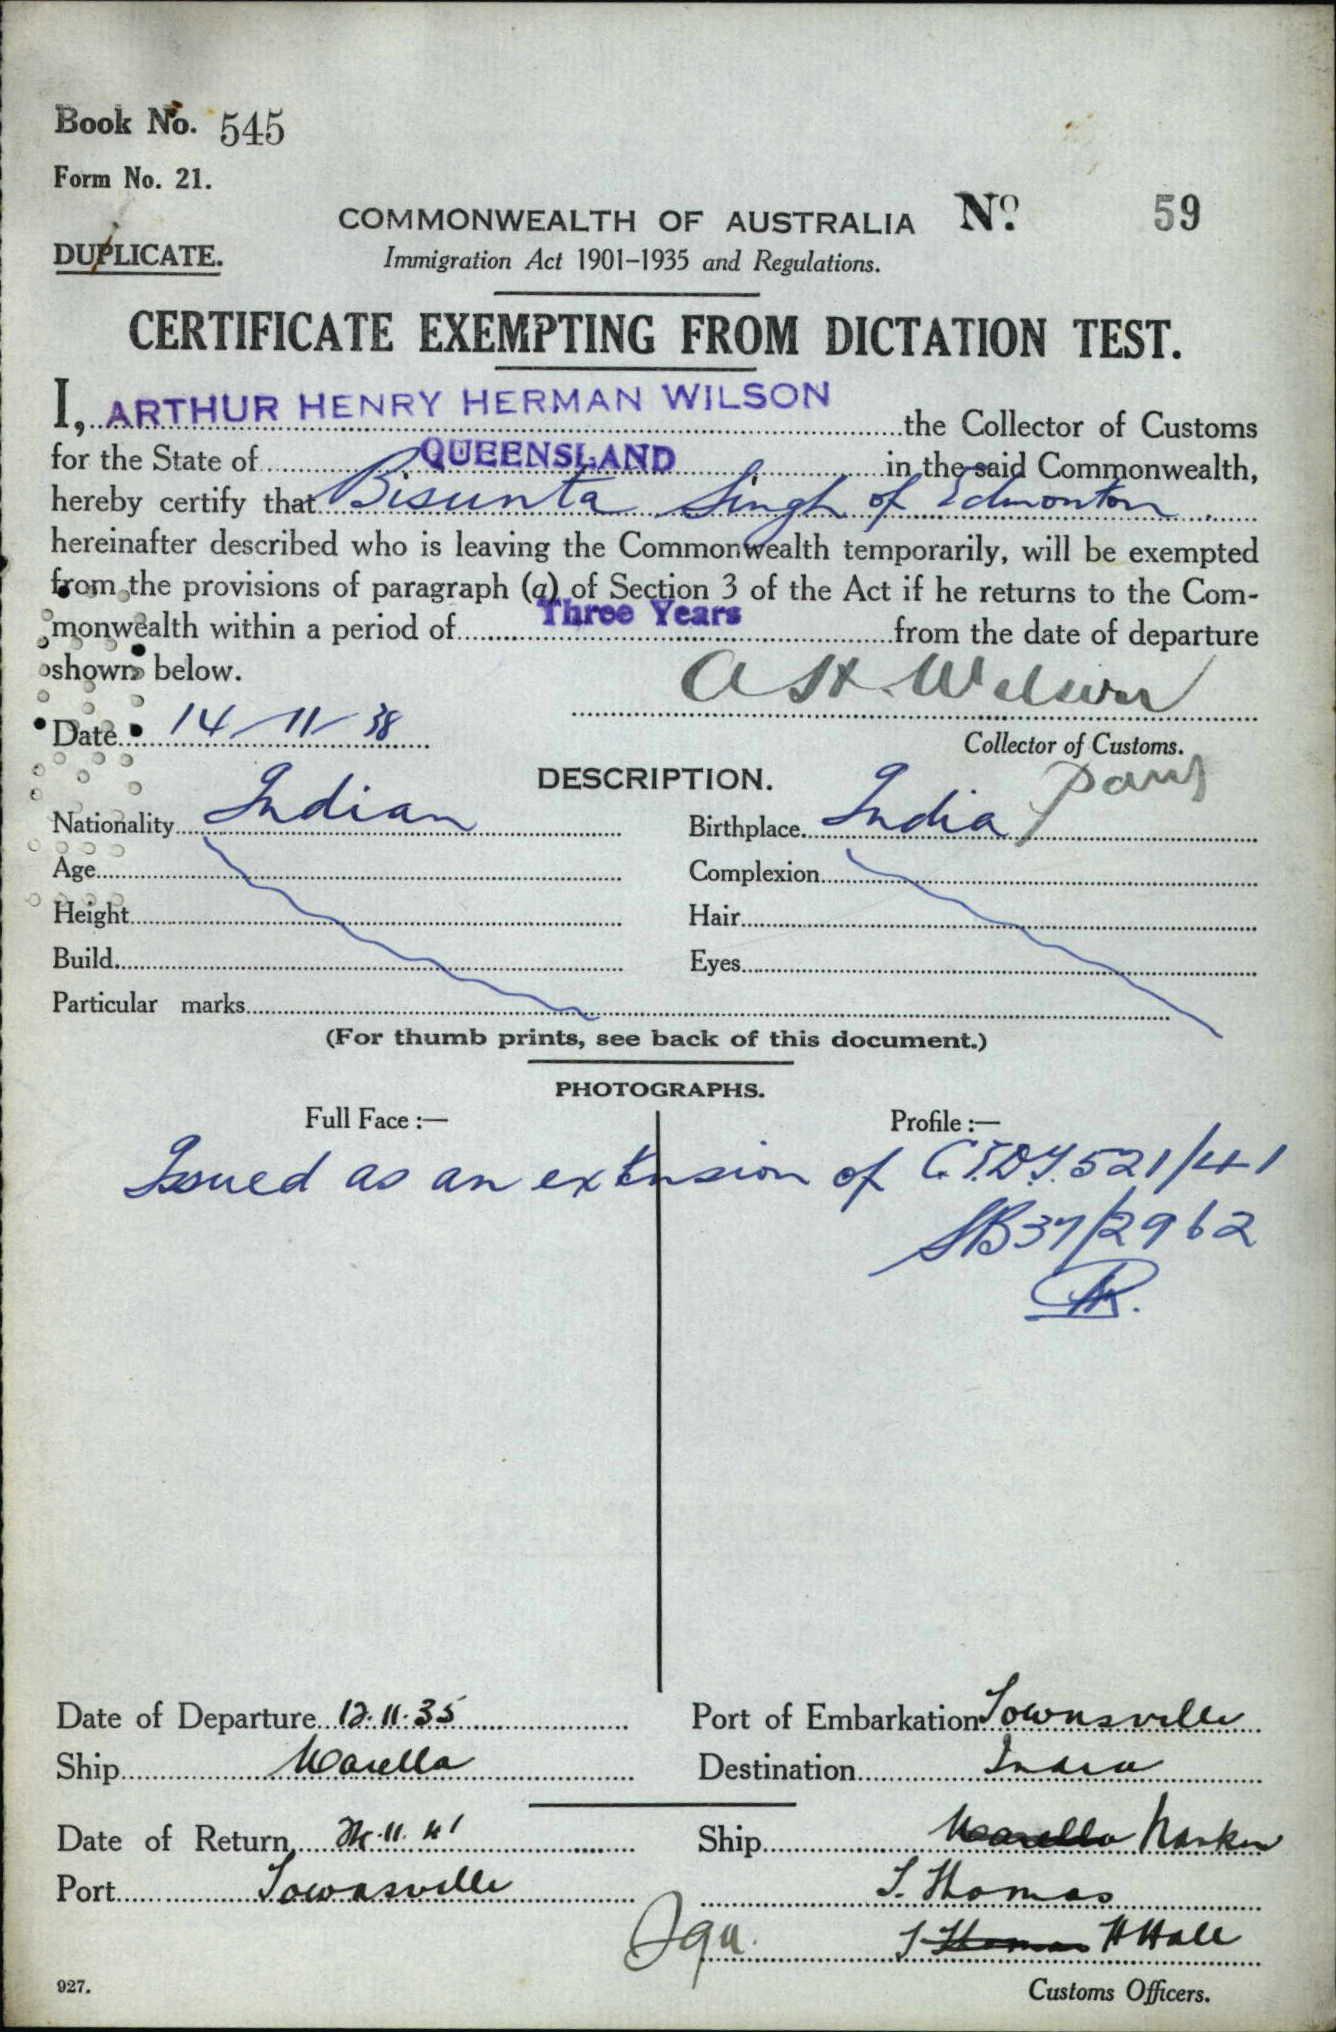 Book No. 545
Form No. 21.
COMMONWEALTH OF AUSTRALIA No. 59
DUPLICATE.
Immigration Act 1901-1935 and Regulations.
CERTIFICATE EXEMPTING FROM DICTATION TEST.
I, ARTHUR HENRY HERMAN WILSON the Collector of Customs
for the State of QUEENSLAND in the said Commonwealth,
hereby certify that Bisunta Singh of Edmonton
hereinafter described who is leaving the Commonwealth temporarily, will be exempted
from the provisions of paragraph (a) of Section 3 of the Act if he returns to the Com-
monwealth within a period of Three Years from the date of departure
shown below.
A H Wilson
Date 14/11/38
Collector of Customs.
DESCRIPTION.
Nationality Indian Birthplace India
Age Complexion
Height Hair
Build Eyes
Particular marks
(For thumb prints, see back of this document.)
PHOTOGRAPHS.
Full Face :— Profile :—
Issued as an extension of C.E.D.T. 521/41
SB 37/2962
Date of Departure 12.11.35 Port of Embarkation Townsville
Ship Marella Destination India
Date of Return .11.41 Ship Marella Nankin
Port Townsville T. Thomas
T Thomas H Hall
927.
Customs Officers.